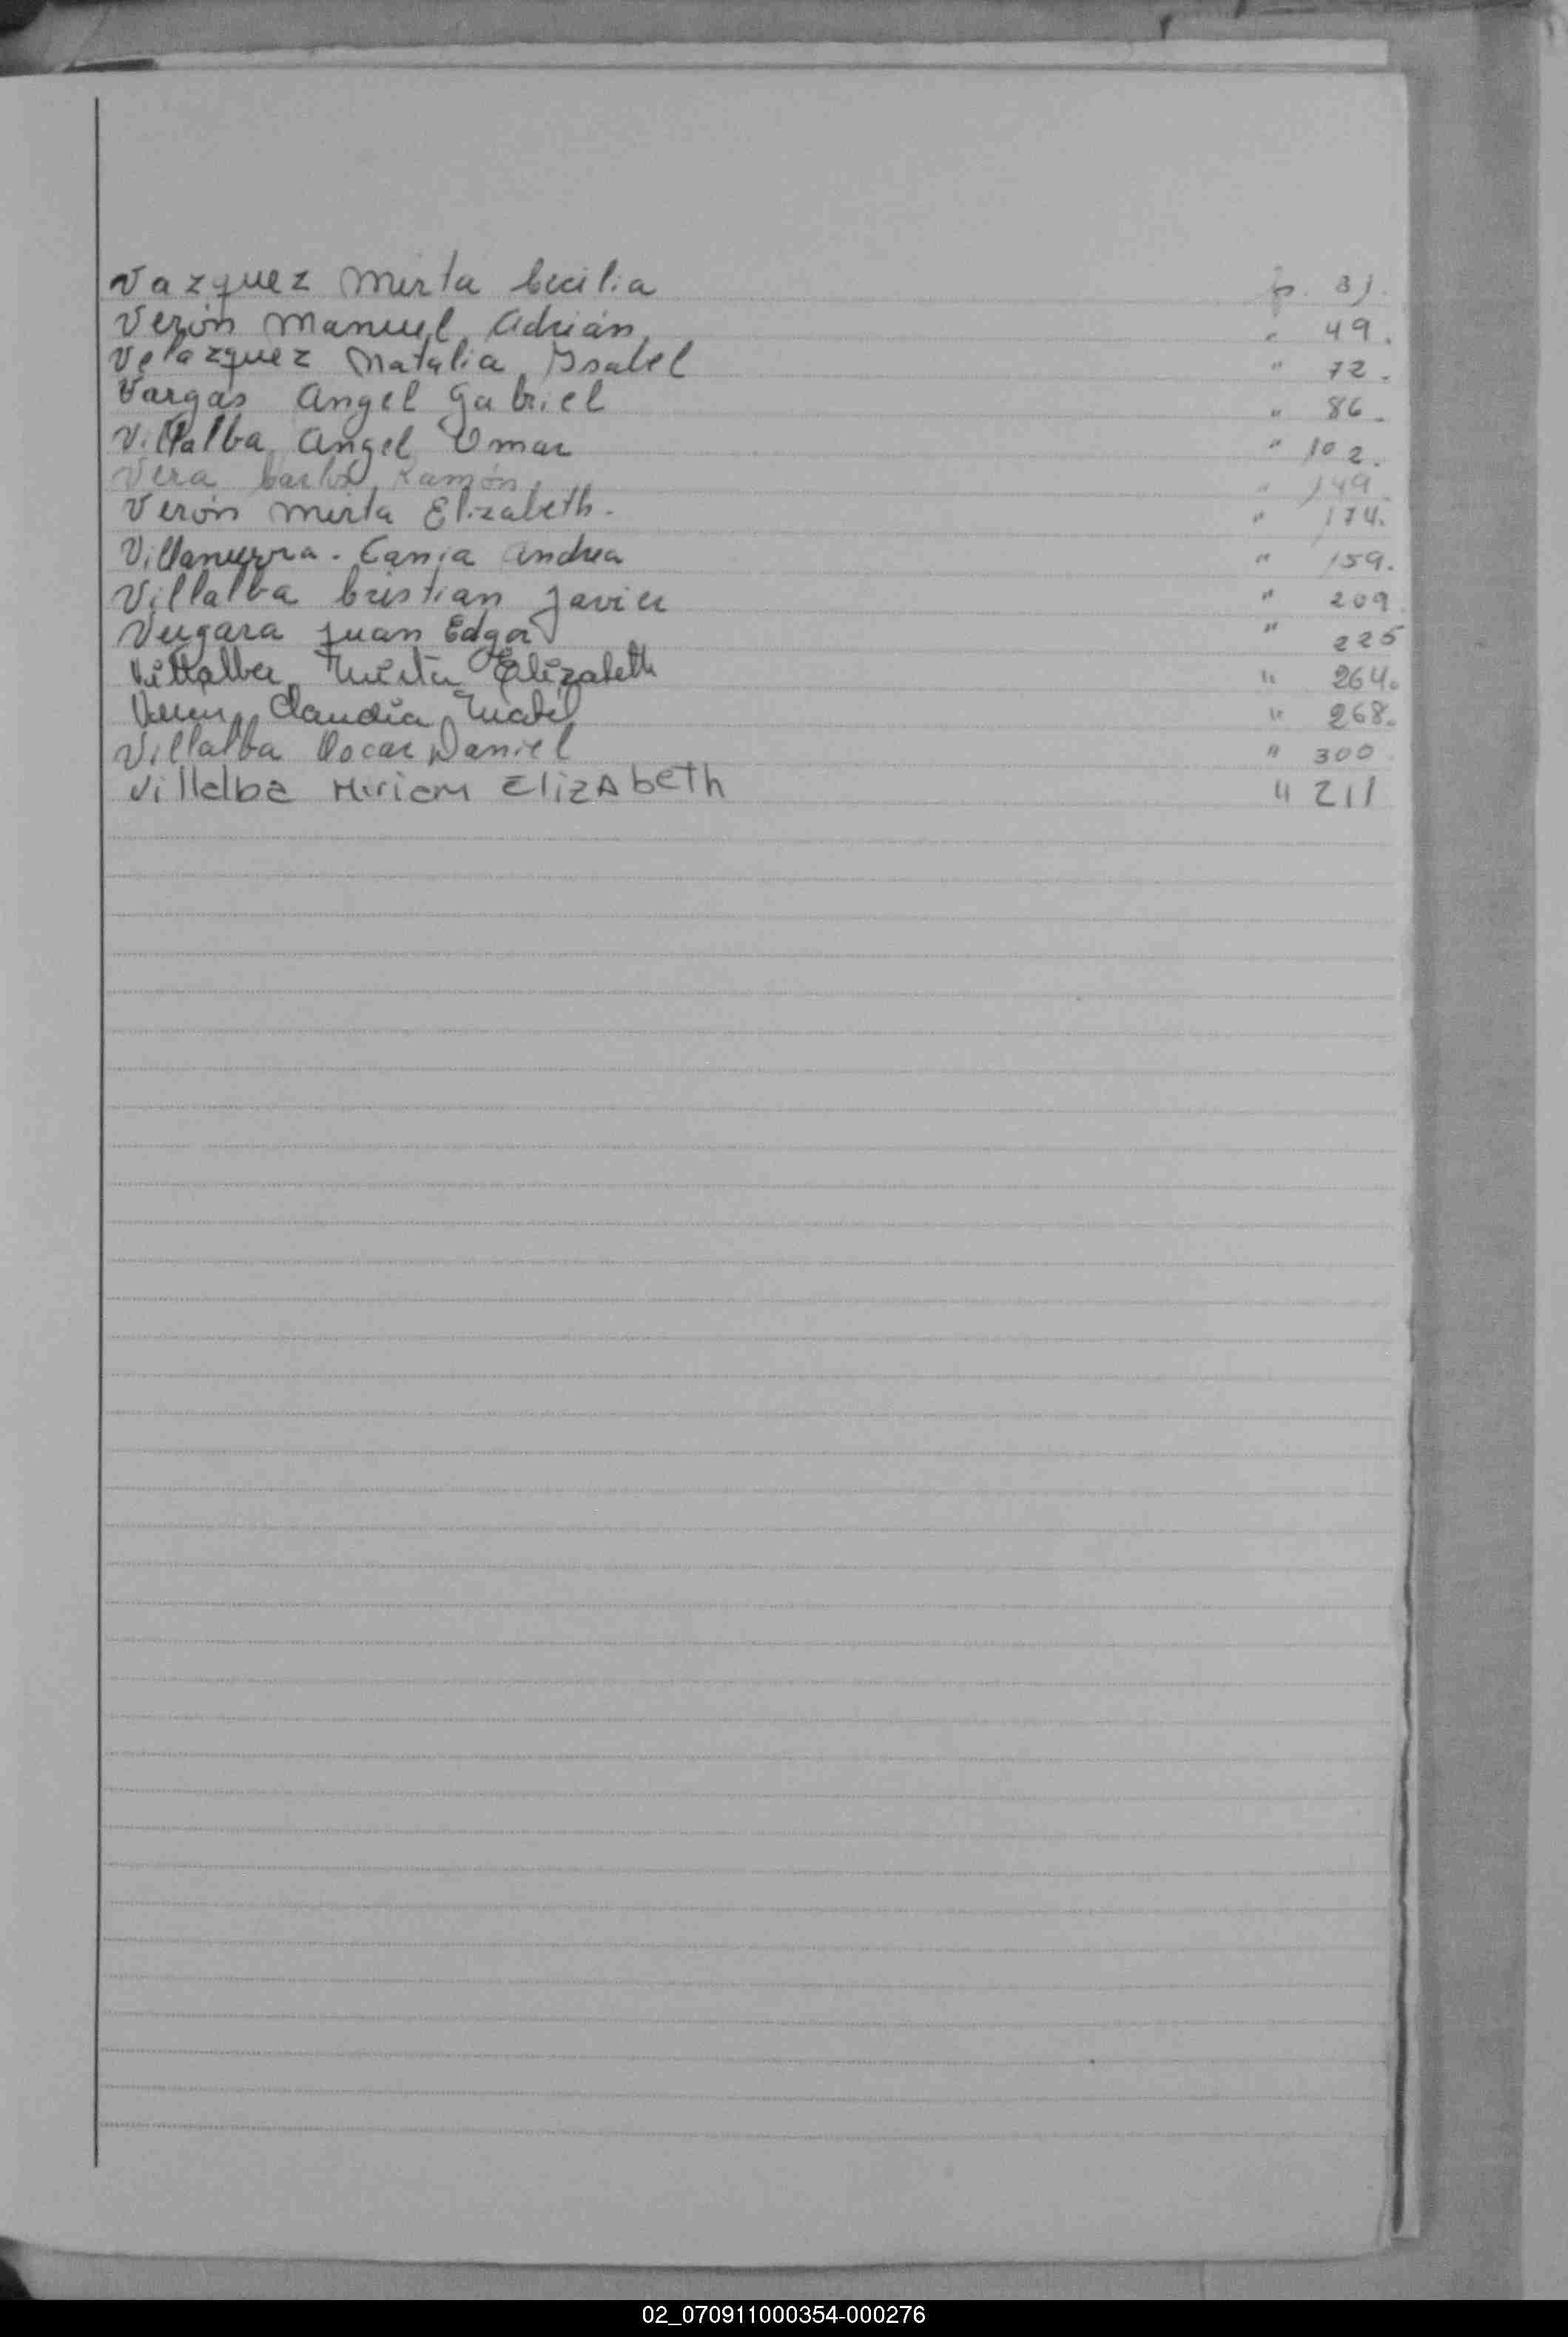 Vazquez Mirta Cecilia p. 31.
Verón Manuel Adrián " 49.
Velazquez Natalia Ysabel " 72.
Vargas Angel Gabriel " 86.
Villalba Angel Omar " 102.
Vera Carlos Ramón " 149.
Verón Mirta Elizabeth. " 174.
Villanueva - Tania Andrea " 159.
Villalba Cristian Javier " 209.
Vergara Juan Edgar " 225
Villalba Mirta Elizabeth " 264.
Claudia " 268.
Villalba Oscar Daniel " 300.
Villalba Miriam ElizAbeth " 211
02_070911000354-000276